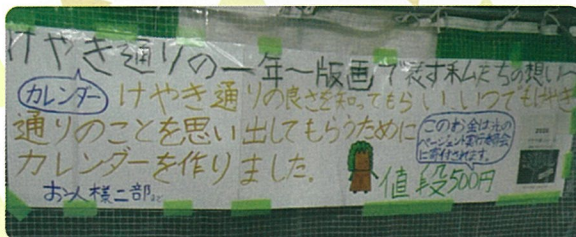 けやき通りの一年〜版画で表す私たちの想い〜
カレンダー
けやき通りの良さを知ってもらい、いつでもけやき
通りのことを思い出してもらうために
カレンダーを作りました。
このお金は光の
ページェント実行委員会
に寄付されます。
お一人様二部まで
値段500円